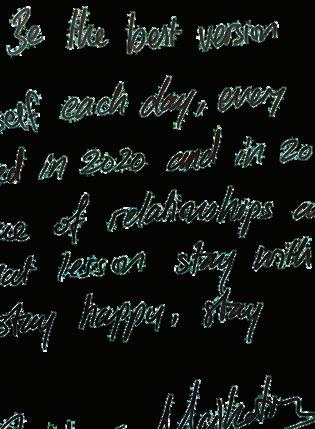 Be the best version
self each day, every
ed in 2020 and in 20
of relationships
lesson stay with
stay happy, stay